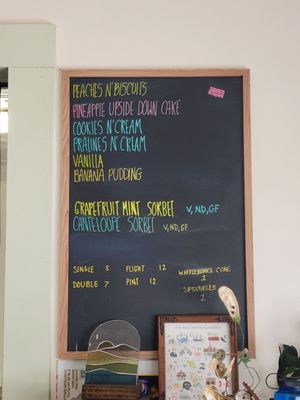 PEACHES N' BISCUITS
PINEAPPLE UPSIDE DOWN CAKE
COOKIES N' CREAM
PRALINES N' CREAM
VANILLA
BANANA PUDDING
GRAPEFRUIT MINT SORBET V, ND, GF
CANTELOUPE SORBET V, ND, GF
SINGLE 5 FLIGHT 12 WAFFLE/CAKE CONE
1
DOUBLE 7 PINT 12 SPRINKLES
1